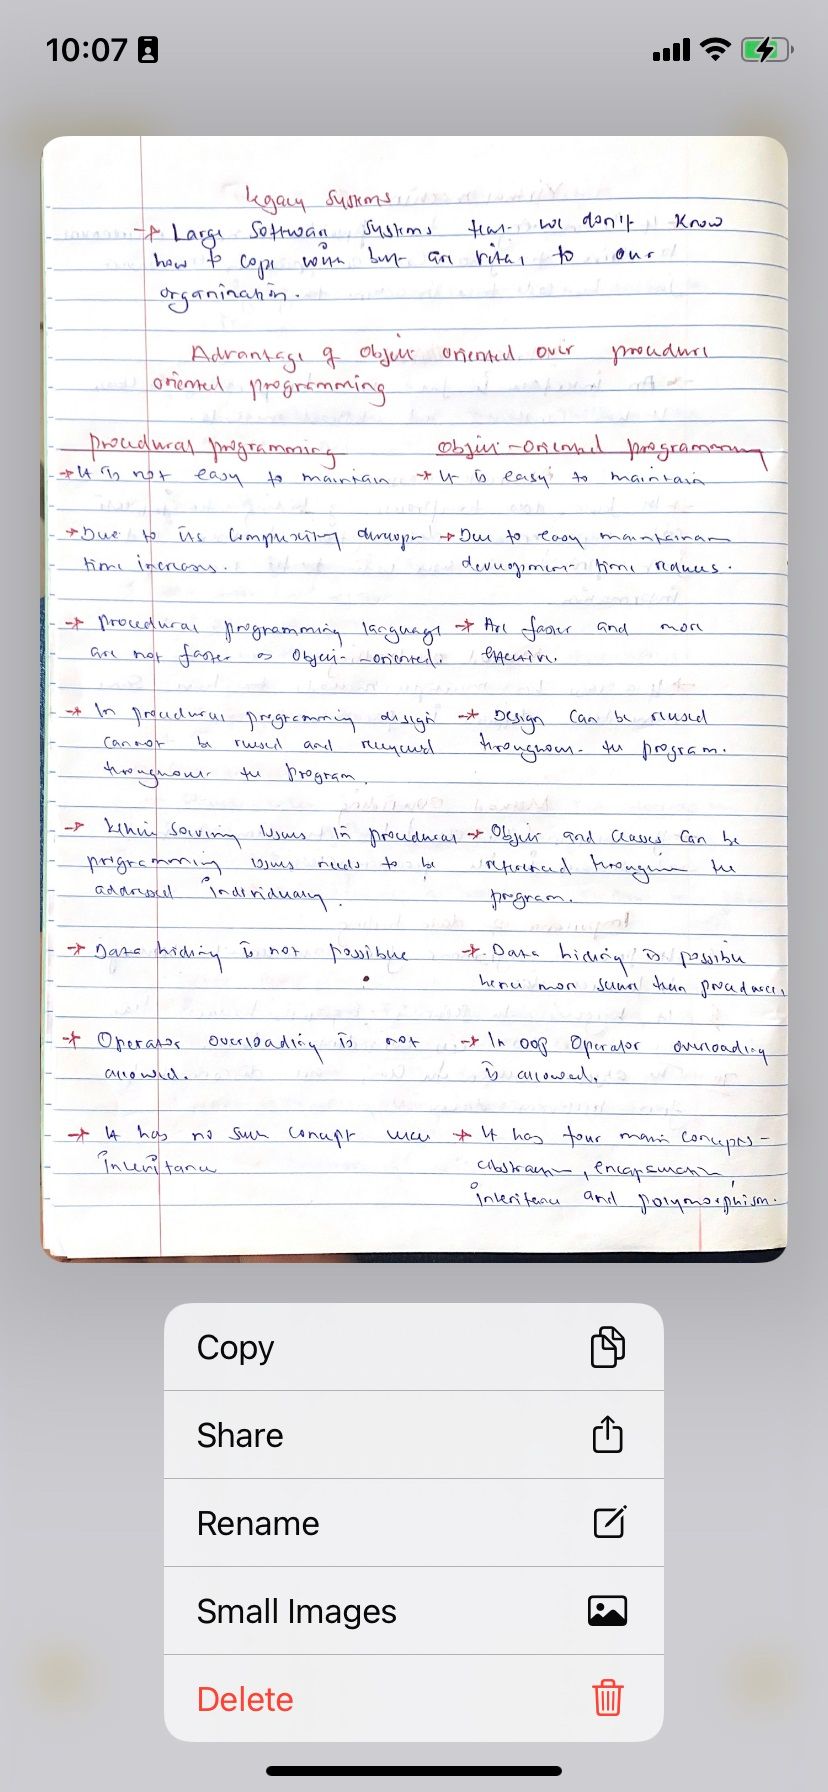 10:07
Legacy Systems
→ Large Software Systems that we don't know
how to cope with but are vital to our
organization.
Advantage of Object oriented over procedure
oriented programming
Procedural programming
Object-Oriented programming
→ It is not easy to maintain
→ It is easy to maintain
→ Due to its complexity develop
time increases.
→ Due to easy maintenance
development time reduces.
→ Procedural programming language
are not faster as Object-oriented.
→ Are faster and more
effective.
→ In procedural programming design
cannot be reused and recycled
throughout the program.
→ Design can be reused
throughout the program.
→ While solving issues in procedural
programming issues needs to be
addressed individually.
→ Object and classes can be
referenced throughout the
program.
→ Data hiding is not possible
→ Data hiding is possible
hence more secure than procedures
→ Operator overloading is not
allowed.
→ In oop Operator overloading
is allowed.
→ It has no such concept like
inheritance
→ It has four main concepts-
abstraction, encapsulation,
inheritance and polymorphism.
Copy
Share
Rename
Small Images
Delete